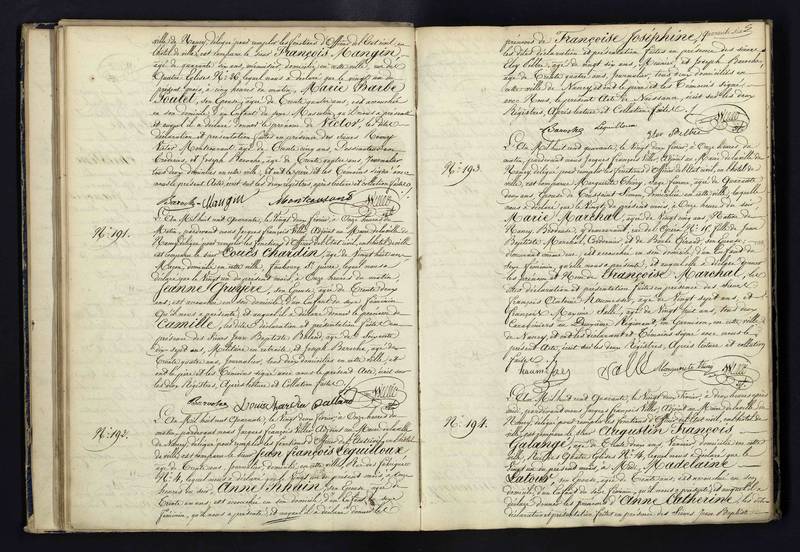 ville de Nancy, délégué pour remplir les fonctions d'Officier de l'Etat civil, en
hôtel de ville, est comparu le Sieur François Mangin,
âgé de quarante cinq ans, menuisier, domicilié en cette ville, rue des
Quatre Eglises N.º 46, lequel nous a déclaré que le vingt un du
présent mois, à cinq heures du matin, Marie Barbe
Toutel, son Epouse, âgée de Trente quatre ans, est accouchée
en son domicile d'un Enfant du sexe Masculin, qu'il nous a présenté
et auquel il a déclaré donner le prénom de Victor, les dites
déclaration et présentation faites en présence des Sieurs
Victor Montcausant, âgé de Trente cinq ans,
et Joseph Baroche, âgé de Trente quatre ans, Journalier
tous deux domiciliés en cette ville; et ont le père et les Témoins signé avec
nous le présent Acte, écrit sur les deux registres, après lecture et collation faites
Baroche Mangin Montcausant
N.º 191.
L'An Mil huit cent Quarante, le Vingt deux Février, à Onze heures du
Matin, pardevant nous Jacques François Villot Adjoint au Maire de la ville de
Nancy, délégué pour remplir les fonctions d'Officier de l'Etat civil, en l'hôtel de ville
est comparu le Sieur Louis Chardin, âgé de Vingt huit ans
Maçon, domicilié en cette ville, Faubourg St pierre, lequel nous a
déclaré que le Vingt un du présent mois, à Onze heures du matin,
Jeanne Gruyère, son Epouse, âgée de Trente deux
ans, est accouchée en son domicile, d'un Enfant du sexe féminin
Qu'il nous a présenté, et auquel il a déclaré donner le prénom de
Camille, les dites Déclaration et présentation faites en
présence des Sieurs Jean Baptiste Balland, âgé de Soixante
dix sept ans, Militaire en retraite, et Joseph Baroche, âgé de
Trente quatre ans, Journalier, tous deux domiciliés en cette Ville, et
ont le père et les Témoins signé avec nous le présent Acte, écrit sur
les deux Registres, Après lecture et Collation faites
Baroche Louis Chardin Balland
N.º 192.
L'An Mil huit cent Quarante, le Vingt deux Février, à Onze heures du
matin, pardevant nous Jacques François Villot, Adjoint au Maire de la Ville
de Nancy, délégué pour remplir les fonctions d'Officier de l'Etat civil, en l'hôtel
de ville, est comparu le Sieur Jean François Lequilloux
âgé de Trente ans, Journalier, domicilié en cette ville, Rue des Fabriques
N.º 4, lequel nous a déclaré, que le Vingt un du présent mois, à Onze
heures du soir, Anne Schain, son Epouse, âgée de
Trente un ans, est accouchée en son domicile, d'un Enfant du sexe
féminin, qu'il nous a présenté, et auquel il a déclaré donner les
prénoms de Françoise Joséphine,
les dites déclaration et présentation faites en présence des sieurs
âgé de vingt six ans, Menuisier, et Joseph Baroche,
âgé de Trente quatre ans, Journalier, tous deux domiciliés en
cette ville de Nancy, et ont le père et les Témoins signé
avec Nous, le présent Acte de Naissance, écrit sur les deux
Registres, Après lecture et Collation faites
Baroche Lequilloux
N.º 193.
L'An Mil huit cent quarante, le Vingt deux février, à Onze heures du
matin, pardevant nous Jacques François Villot Adjoint au Maire de la ville de
Nancy délégué pour remplir les fonctions d'Officier de l'Etat civil, en l'hôtel de
ville, est comparue Marguerite Thiery, Sage femme, âgée de Quarante
domiciliée en cette Ville, laquelle
nous a déclaré que le Vingt du présent mois, à Onze heures du soir
Marie Marchal, âgée de Vingt cinq ans, Native de
Nancy, Brodeuse, y demeurant, rue de l'Opéra N.º 15, fille de Jean
Baptiste Marchal, Cordonnier, et de Barbe Gérard, son Epouse,
est accouchée en son domicile, d'un Enfant du
Sexe féminin, qu'elle nous a présenté, et auquel elle a déclaré donner
les prénom et Nom de Françoise Marchal, les
dites déclaration et présentation faites en présence des Sieurs
François Antoine Haumesser, âgé de Vingt sept ans, et
François Salle, âgé de Vingt huit ans, tous deux
Carabiniers au Deuxième Régiment, en Garnison, en cette ville
de Nancy, et ont les déclarante et Témoins signé avec nous le
présent Acte, écrit sur les deux Registres, Après lecture et collation
faites
Salle Marguerite Thiery
N.º 194.
L'An Mil huit cent Quarante, le Vingt deux Février, à deux heures après
midi, pardevant nous Jacques François Villot, Adjoint au Maire de la ville de
Nancy, délégué pour remplir les fonctions d'Officier de l'Etat civil, en l'hôtel de
ville, est comparu le Sieur Augustin François
Galangé, âgé de Trente deux ans, Vannier, domicilié en cette
ville, Rue des Quatre Eglises N.º 14, lequel nous a déclaré que le
Vingt un du présent mois, à Midi, Madelaine
Latour, son Epouse, âgée de Trente ans, est accouchée en son
domicile, d'un Enfant du sexe féminin, qu'il nous a présenté et auquel il a
déclaré donner les prénoms d'Anne Catherine, les dites
déclaration et présentation faites en présence des Sieurs Jean Baptiste